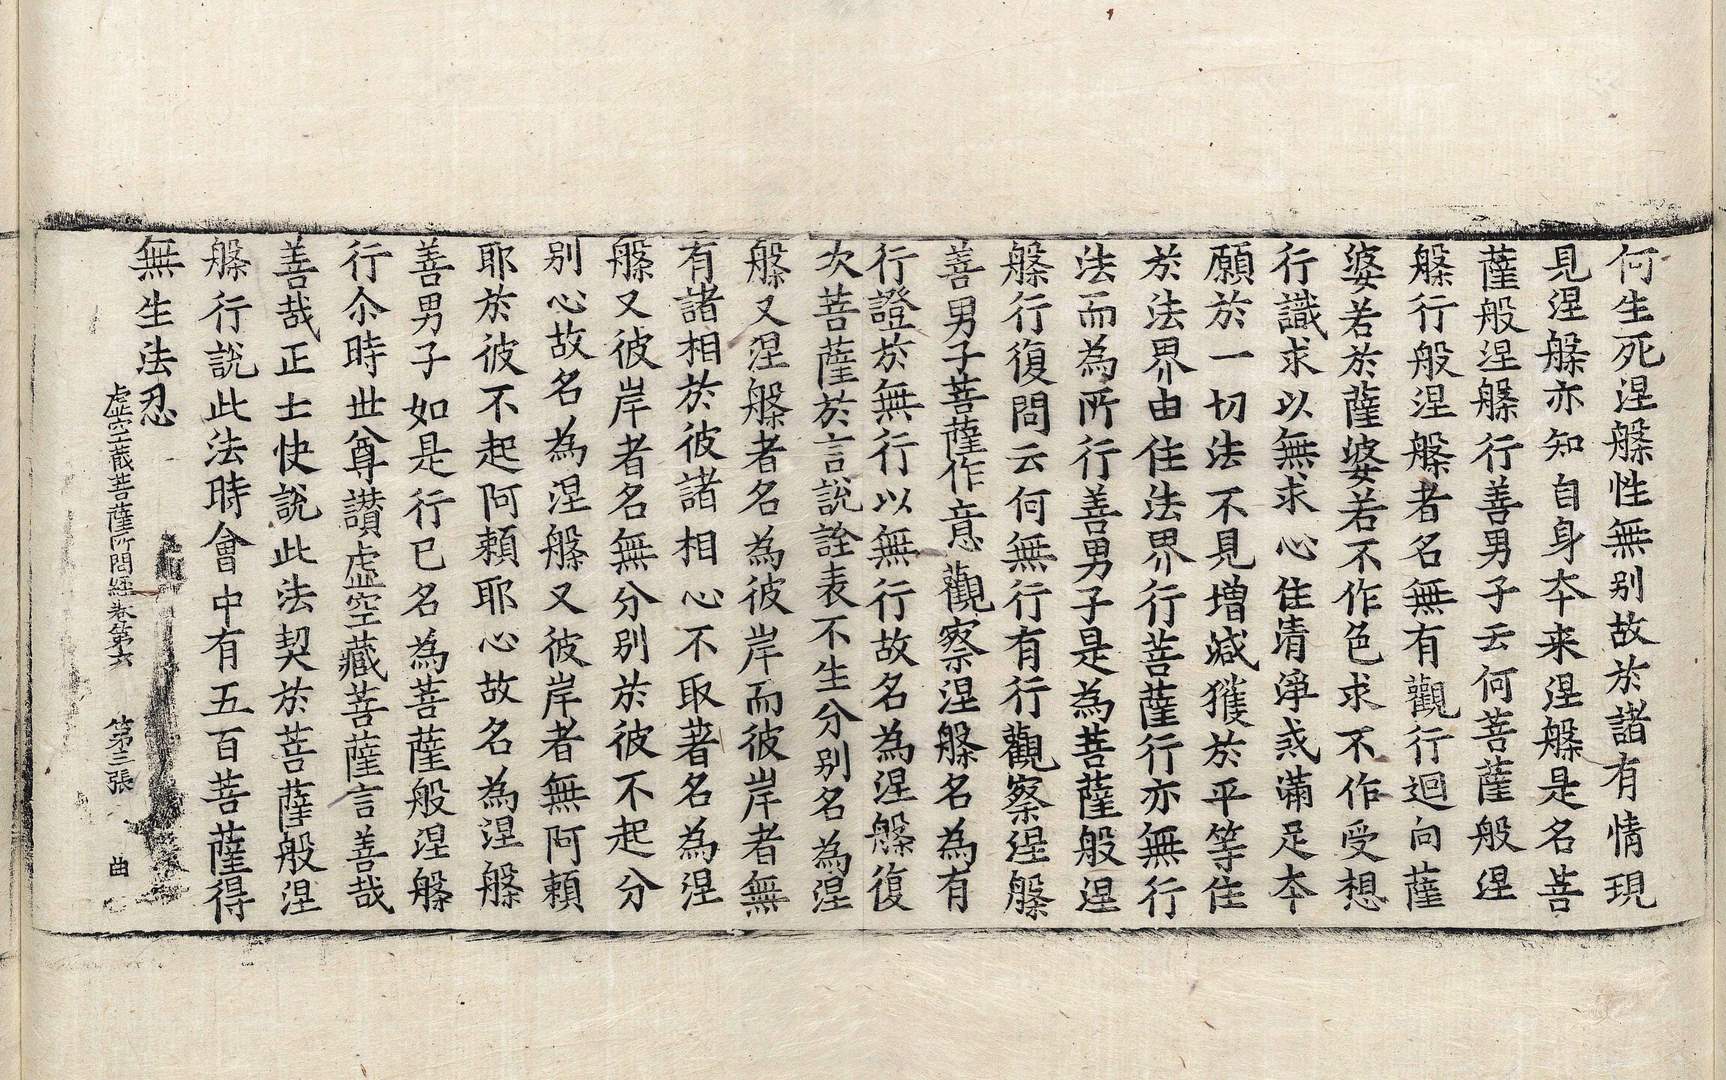 何生死涅槃性無別故於諸有情現
見涅槃亦知自身夲来涅槃是名菩
薩般涅槃行善男子云何菩薩般涅
槃行般涅槃者名無有觀行迴向薩
婆若於薩婆若不作色求不作受想
行識求以無求心住清淨惑滿足夲
願於一切法不見增減獲於平等住
於法界由住法界行菩薩行亦無行
法而為所行善男子是為菩薩般涅
槃行復問云何無行有行觀察涅槃
善男子菩薩作意觀察涅槃名為有
行證於無行以無行故名為涅槃復
次菩薩於言說詮表不生分別名為涅
槃又涅槃者名為彼岸而彼岸者無
有諸相於彼諸相心不取著名為涅
槃又彼岸者名無分別於彼不起分
別心故名為涅槃又彼岸者無阿賴
耶於彼不起阿賴耶心故名為涅槃
善男子如是行已名為菩薩般涅槃
行尒時世尊讚虛空藏菩薩言善哉
善哉正士快說此法契於菩薩般涅
槃行說此法時會中有五百菩薩得
無生法忍
虛空藏菩薩所問經卷第六 第三張 曲